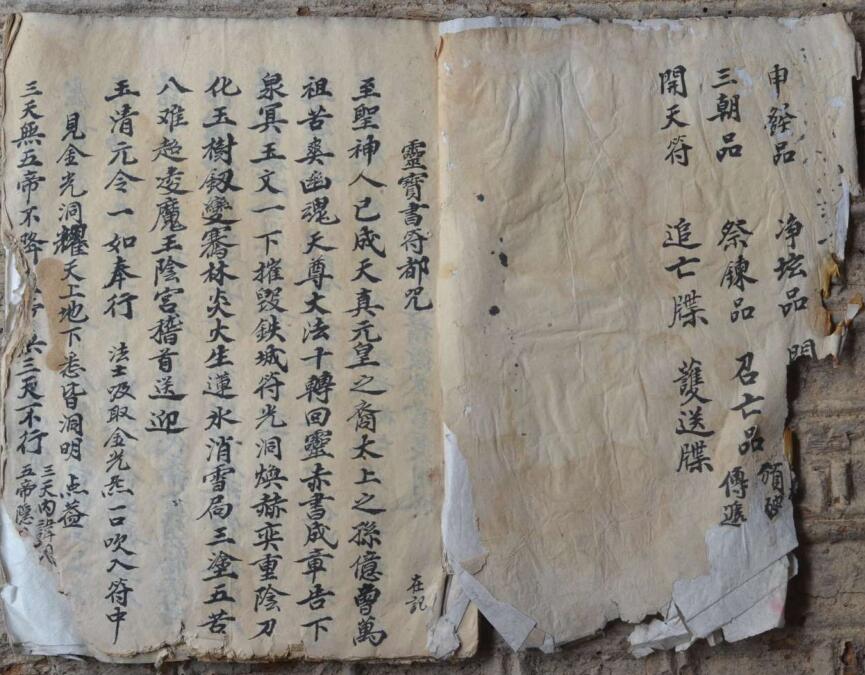 申經品 净坛品
三朝品 祭鍊品 召亡品 傳遞
開天符 追亡牒 護送牒
靈寶書符都咒
至聖神人已成天真元皇之裔太上之孫億曾萬
祖苦爽幽魂天尊大法千轉回靈赤書成章告下
泉冥玉文一下摧毀鉄城符光洞煥赫奕重陰刀
化玉樹釼變騫林炎火生蓮氷消雪局三塗五苦
八难超凌魔王陰宮稽首送迎
玉清元令一如奉行 法士吸取金光炁一口吹入符中
見金光洞耀天上地下悉皆洞明 点益
三天炁五帝不降 三天不行 三天內諱 五帝隐
在記